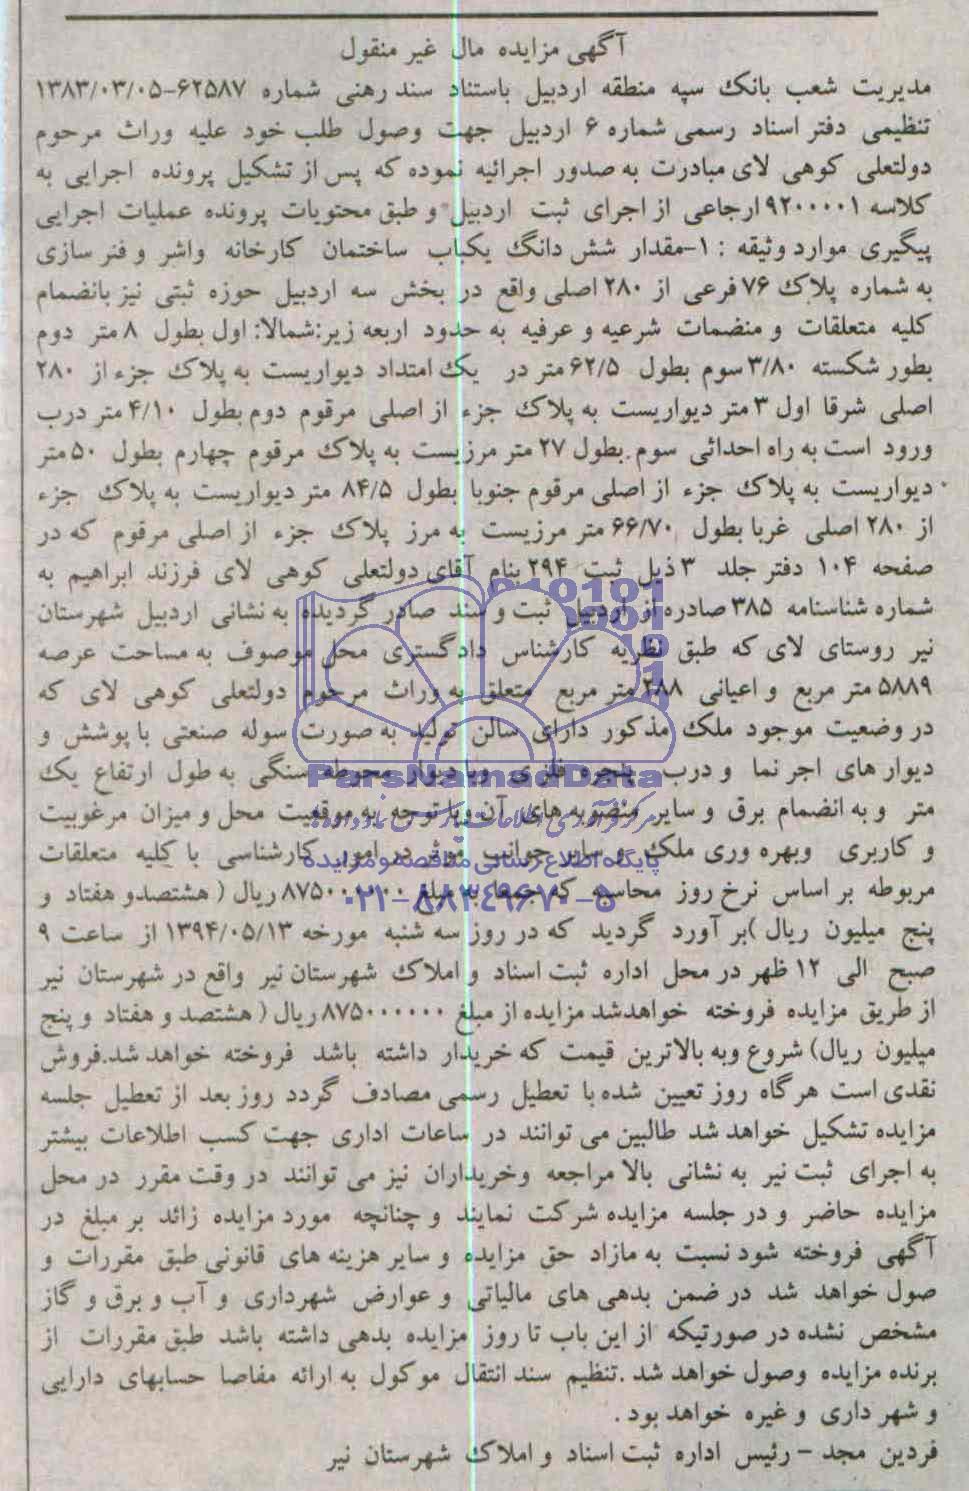 آگهی مزایده مال غیر منقول
مدیریت شعب بانک سپه منطقه اردبیل باستناد سند رهنی شماره ۶۲۵۸۷-۱۳۸۳/۰۳/۰۵
تنظیمی دفتر اسناد رسمی شماره ۶ اردبیل جهت وصول طلب خود علیه وراث مرحوم
دولتعلی کوهی لای مبادرت به صدور اجرائیه نموده که پس از تشکیل پرونده اجرایی به
کلاسه ۹۲۰۰۰۰۱ ارجاعی از اجرای ثبت اردبیل و طبق محتویات پرونده عملیات اجرایی
پیگیری موارد وثیقه : ۱-مقدار شش دانگ یکباب ساختمان کارخانه واشر و فنر سازی
به شماره پلاک ۷۶ فرعی از ۲۸۰ اصلی واقع در بخش سه اردبیل حوزه ثبتی نیز بانضمام
کلیه متعلقات و منضمات شرعیه و عرفیه به حدود اربعه زیر:شمالا: اول بطول ۸ متر دوم
بطور شکسته ۳/۸۰ سوم بطول ۶۲/۵ متر در یک امتداد دیواریست به پلاک جزء از ۲۸۰
اصلی شرقا اول ۳ متر دیواریست به پلاک جزء از اصلی مرقوم دوم بطول ۴/۱۰ متر درب
ورود است به راه احداثی سوم بطول ۲۷ متر مرزیست به پلاک مرقوم چهارم بطول ۵۰ متر
دیواریست به پلاک جزء از اصلی مرقوم جنوبا بطول ۸۴/۵ متر دیواریست به پلاک جزء
از ۲۸۰ اصلی غربا بطول ۶۶/۷۰ متر مرزیست به مرز پلاک جزء از اصلی مرقوم که در
صفحه ۱۰۴ دفتر جلد ۳ ذیل ثبت ۲۹۴ بنام آقای دولتعلی کوهی لای فرزند ابراهیم به
شماره شناسنامه ۳۸۵ صادره از اردبیل ثبت و سند صادر گردیده به نشانی اردبیل شهرستان
نیر روستای لای که طبق نظریه کارشناس دادگستری محل موصوف به مساحت عرصه
۵۸۸۹ متر مربع و اعیانی ۲۸۸ متر مربع متعلق به وراث مرحوم دولتعلی کوهی لای که
در وضعیت موجود ملک مذکور دارای سالن تولید به صورت سوله صنعتی با پوشش و
دیوار های اجر نما و درب پنجره فلزی وبا دیوار محوطه سنگی به طول ارتفاع یک
ParsNamadData
متر و به انضمام برق و سایر منصوبه های آن وبا توجه به موقعیت محل و میزان مرغوبیت
و کاربری وبهره وری ملک و سایر جوانب موثر در امور کارشناسی با کلیه متعلقات
پایگاه اطلاع رسانی مناقصه و مزایده
مربوطه بر اساس نرخ روز محاسبه که جمعا به مبلغ ۸۷۵۰۰۰۰۰۰ ریال ( هشتصدو هفتاد و
۰۲۱-۸۸۳۴۹۶۷۰-۵
پنج میلیون ریال )بر آورد گردید که در روز سه شنبه مورخه ۱۳۹۴/۰۵/۱۳ از ساعت ۹
صبح الی ۱۲ ظهر در محل اداره ثبت اسناد و املاک شهرستان نیر واقع در شهرستان نیر
از طریق مزایده فروخته خواهدشد مزایده از مبلغ ۸۷۵۰۰۰۰۰۰ ریال ( هشتصد و هفتاد و پنج
میلیون ریال) شروع وبه بالاترین قیمت که خریدار داشته باشد فروخته خواهد شد.فروش
نقدی است هر گاه روز تعیین شده با تعطیل رسمی مصادف گردد روز بعد از تعطیل جلسه
مزایده تشکیل خواهد شد طالبین می توانند در ساعات اداری جهت کسب اطلاعات بیشتر
به اجرای ثبت نیر به نشانی بالا مراجعه وخریداران نیز می توانند در وقت مقرر در محل
مزایده حاضر و در جلسه مزایده شرکت نمایند و چنانچه مورد مزایده زائد بر مبلغ در
آگهی فروخته شود نسبت به مازاد حق مزایده و سایر هزینه های قانونی طبق مقررات و
صول خواهد شد در ضمن بدهی های مالیاتی و عوارض شهرداری و آب و برق و گاز
مشخص نشده در صورتیکه از این باب تا روز مزایده بدهی داشته باشد طبق مقررات از
برنده مزایده وصول خواهد شد .تنظیم سند انتقال موکول به ارائه مفاصا حسابهای دارایی
و شهر داری و غیره خواهد بود .
فردین مجد - رئیس اداره ثبت اسناد و املاک شهرستان نیر